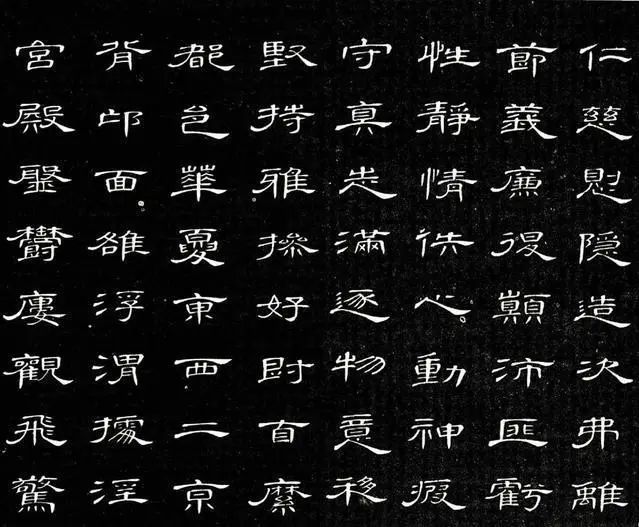 仁慈惻隱造次弗離
節義廉退顛沛匪虧
性靜情逸心動神疲
守真志滿逐物意移
堅持雅操好爵自縻
都邑華夏東西二京
背邙面雒浮渭據涇
宮殿盤鬱樓觀飛驚